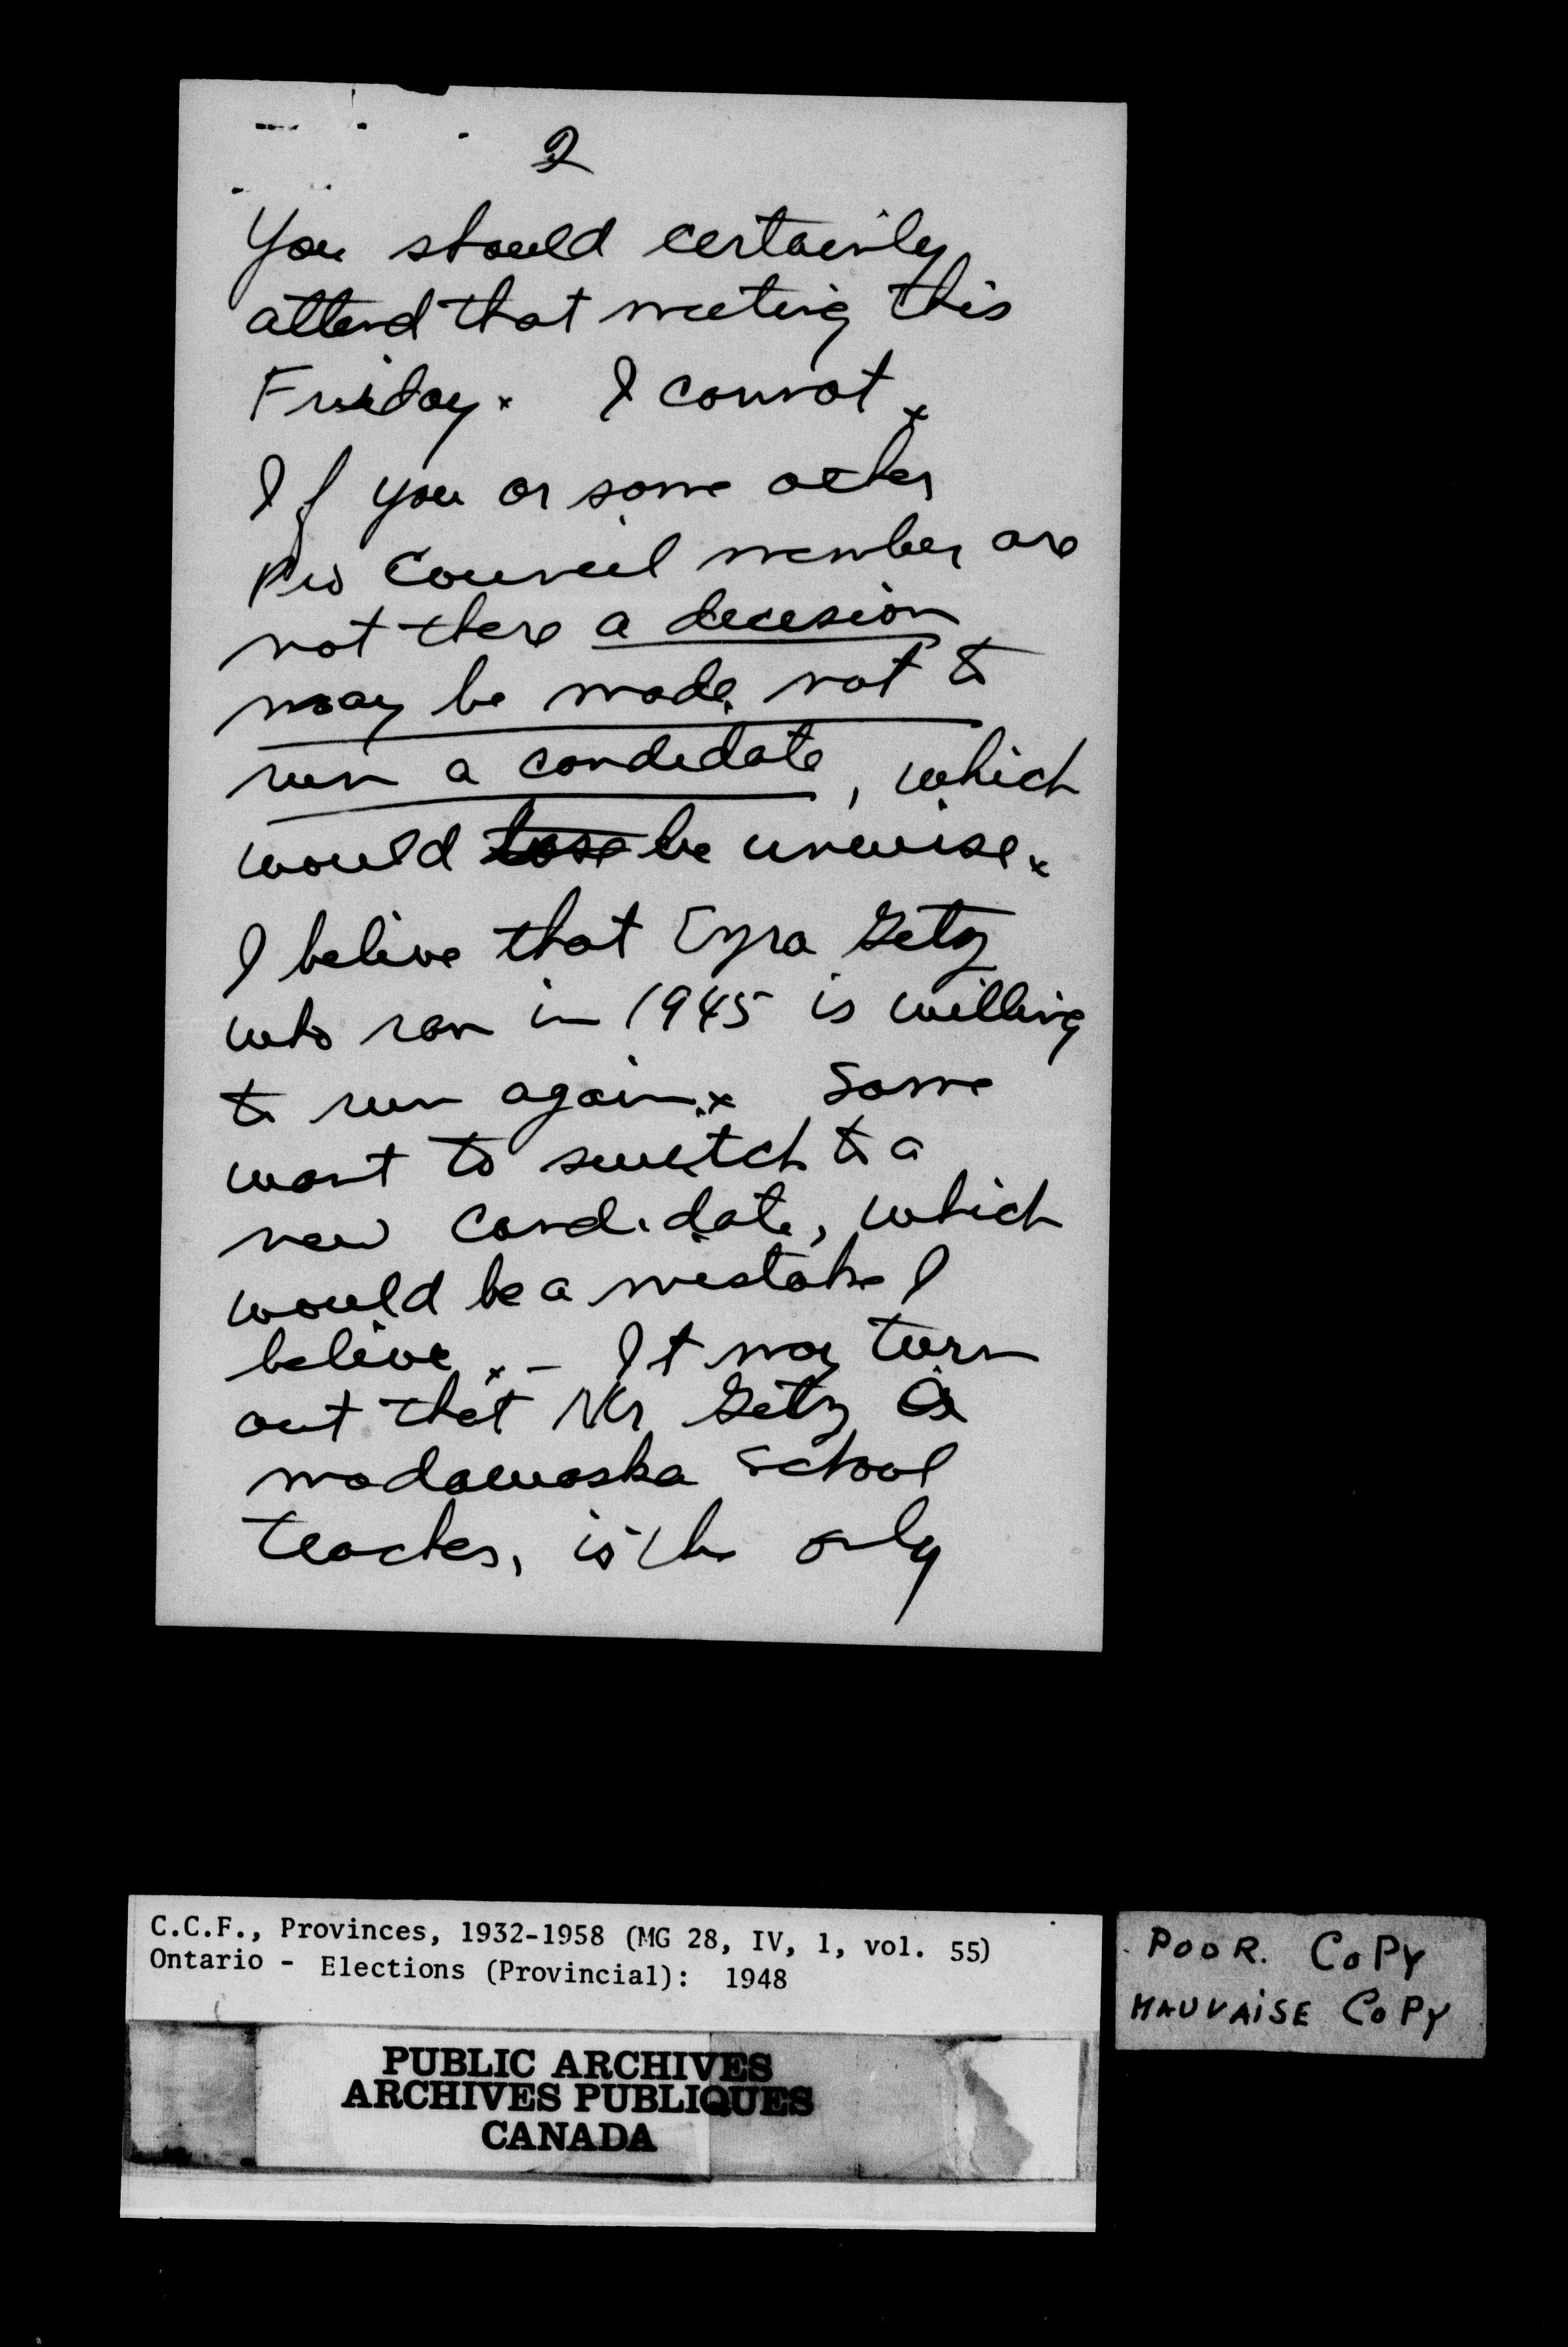 2
You should certainly
attend that meeting this
Friday. I cannot.
If you or some other
Pro Council member are
not there a decesion
may be made not to
run a candidate, which
would be unwise.
I belive that Ezra Getz
who ran in 1945 is willing
to run again. Some
want to switch to a
new candidate, which
would be a mistake I
belive. - It may turn
out that Mr Getz a
madawaska school
teacher, is the only
C.C.F., Provinces, 1932-1958 (MG 28, IV, 1, vol. 55)
Ontario - Elections (Provincial): 1948
POOR. COPY
MAUVAISE COPY
PUBLIC ARCHIVES
ARCHIVES PUBLIQUES
CANADA